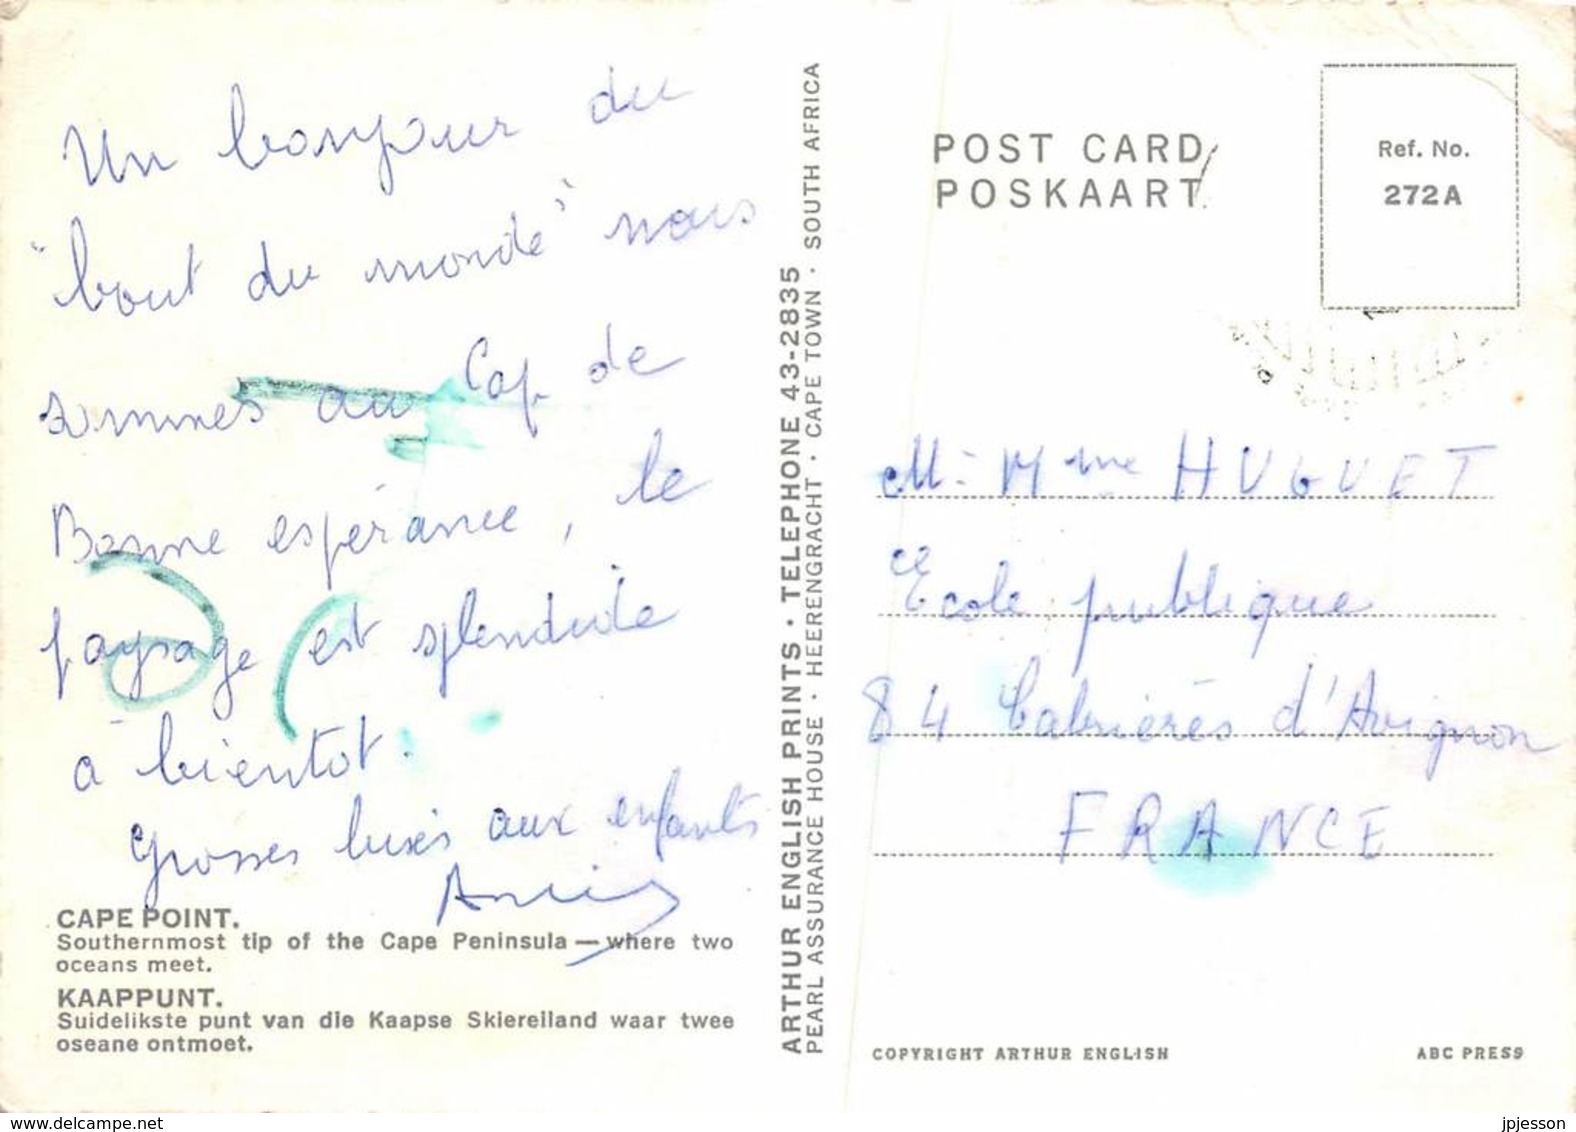 Un bonjour du
"bout du monde" nous
sommes au Cap de
Bonne espérance, le
paysage est splendide
à bientôt.
Grosses bises aux enfants
CAPE POINT.
Southernmost tip of the Cape Peninsula — where two
oceans meet.
KAAPPUNT.
Suidelikste punt van die Kaapse Skiereiland waar twee
oseane ontmoet.
ARTHUR ENGLISH PRINTS · TELEPHONE 43-2835
PEARL ASSURANCE HOUSE · HEERENGRACHT · CAPE TOWN · SOUTH AFRICA
POST CARD
POSKAART
Ref. No.
272A
M. Mme HUGUET
Ecole publique
84 Cabrières d'Avignon
FRANCE
COPYRIGHT ARTHUR ENGLISH
ABC PRESS
www.delcampe.net
jpjesson